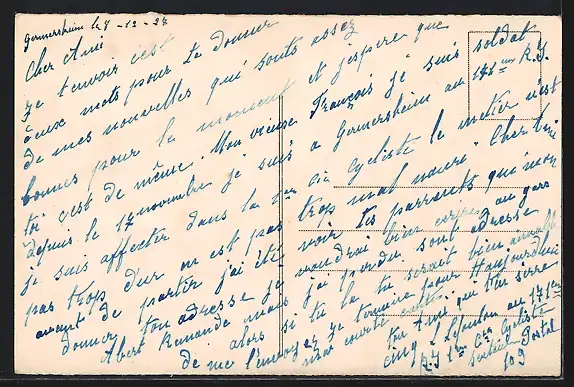 Germersheim le 7-12-27
Cher Ami
Je tenvoir c'est
deux mots pour te donner
de mes nouvelles qui sonts assez
bonnes pour le moment et j'espère que
toi c'est de même. Mon vieux François je suis soldat
depuis le 17 novembre je suis a Germersheim au 171eme R.I.
je suis affecter dans la 1ere cie cycliste le métier n'est
pas trop dur on est pas trop mal nourri. Cher Ami
avant de partir j'ai été voir tes parrants qui mon
donner ton adresse je voudrai bien écrires au gars
Abert Renande mais j'ai perdu sont adresse
alors si tu la tu serait bien aimable
de me l'envoyez. Je termine pour Haujourdhui
ma courte carte.
ton Ami qui ten serre
cinq L. Gouton au 171eme
R.I 1ere Cie Cycliste
Secteur Postal
109